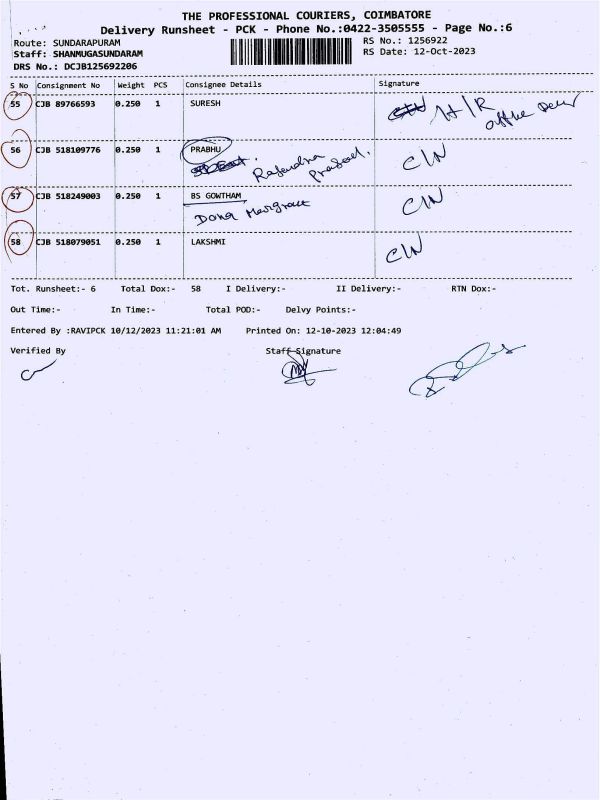 THE PROFESSIONAL COURIERS, COIMBATORE
Delivery Runsheet - PCK - Phone No.:0422-3505555 - Page No.:6
Route: SUNDARAPURAM
RS No.: 1256922
Staff: SHANMUGASUNDARAM
RS Date: 12-Oct-2023
DRS No.: DCJB125692206
S No Consignment No Weight PCS Consignee Details Signature
55 CJB 89766593 0.250 1 SURESH
56 CJB 518109776 0.250 1 PRABHU C/N
Rajendra Prasad.
57 CJB 518249003 0.250 1 BS GOWTHAM C/N
Dona Margrace
58 CJB 518079051 0.250 1 LAKSHMI C/N
Tot. Runsheet:- 6 Total Dox:- 58 I Delivery:- II Delivery:- RTN Dox:-
Out Time:- In Time:- Total POD:- Delvy Points:-
Entered By :RAVIPCK 10/12/2023 11:21:01 AM Printed On: 12-10-2023 12:04:49
Verified By Staff Signature